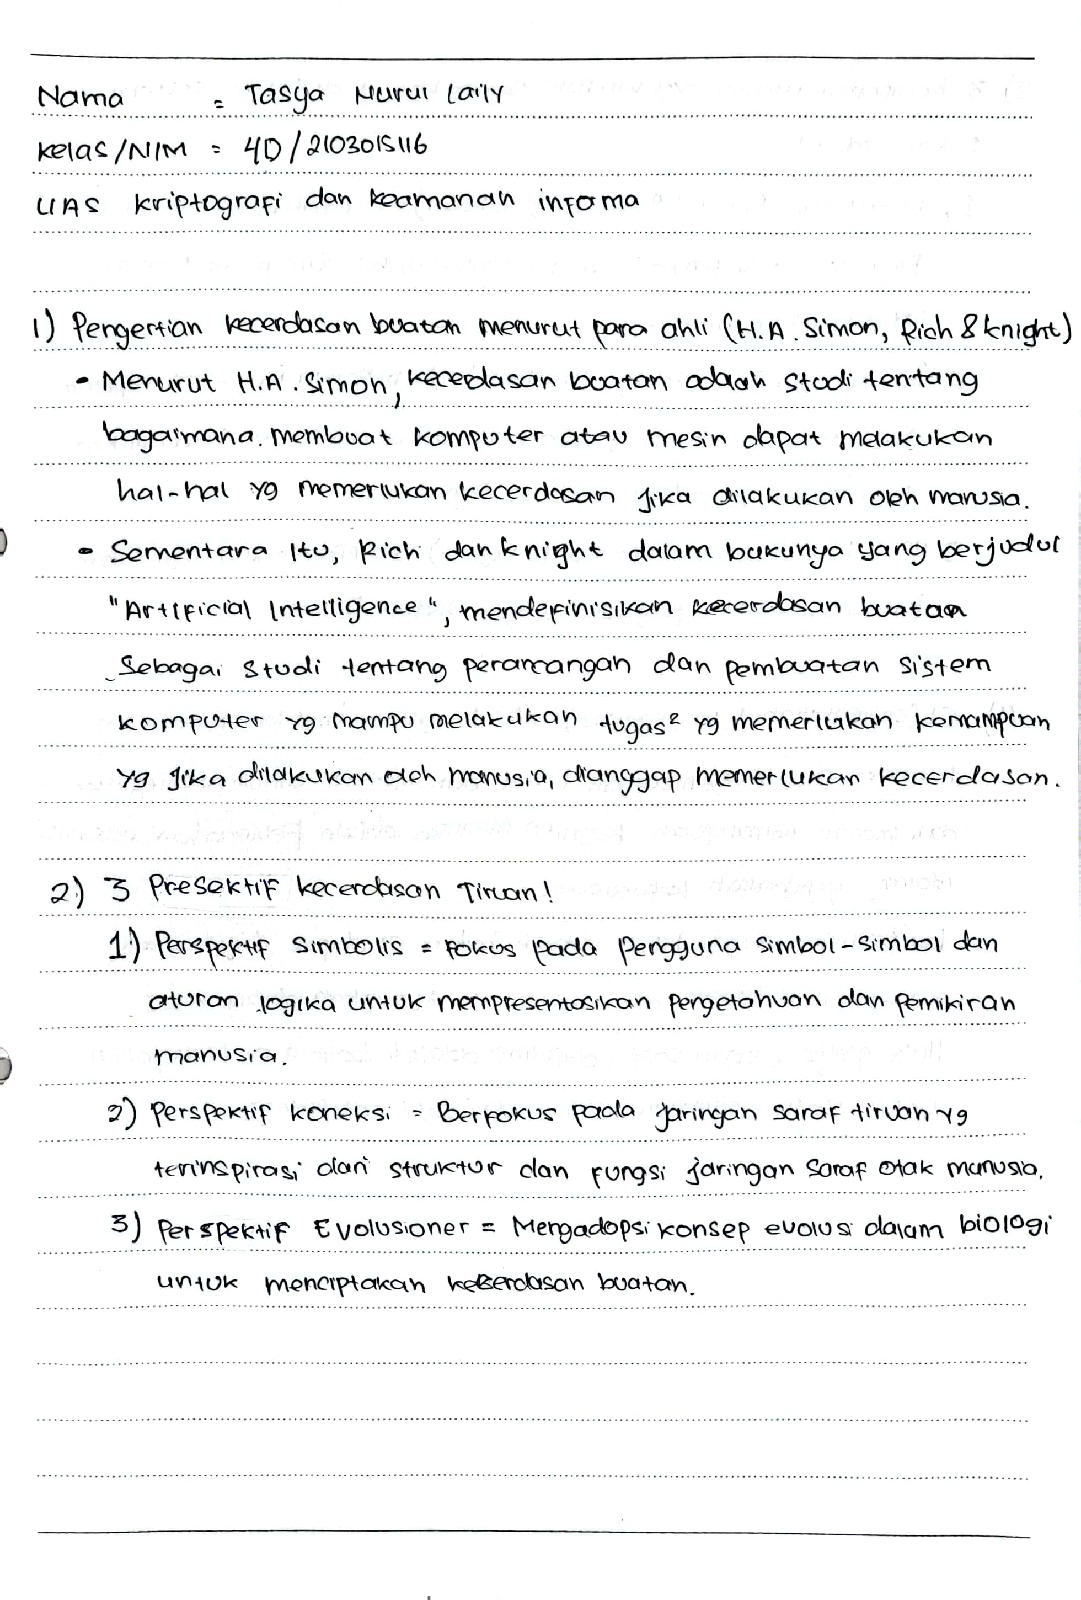 Nama = Tasya Nurul Laily
Kelas/NIM = 4D/2103015116
UAS kriptografi dan keamanan informa
1) Pengertian kecerdasan buatan menurut para ahli (H.A. Simon, Rich & knight)
• Menurut H.A. Simon, kecerdasan buatan adaah studi tentang
bagaimana membuat komputer atau mesin dapat melakukan
hal-hal yg memerlukan kecerdasan jika dilakukan oleh manusia.
• Sementara itu, Rich dan knight dalam bukunya yang berjudul
"Artificial Intelligence", mendefinisikan kecerdasan buatan
Sebagai studi tentang perancangan dan pembuatan sistem
komputer yg mampu melakukan tugas² yg memerlukan kemampuan
yg jika dilakukan oleh manusia, dianggap memerlukan kecerdasan.
2) 3 Presektif kecerdasan Tiruan!
1) Perspektif Simbolis = Fokus pada pengguna simbol-simbol dan
aturan logika untuk mempresentasikan pengetahuan dan pemikiran
manusia.
2) Perspektif koneksi = Berfokus pada jaringan saraf tiruan yg
terinspirasi dari struktur dan fungsi jaringan saraf otak manusia.
3) Perspektif Evolusioner = Mengadopsi konsep evolusi dalam biologi
untuk menciptakan kecerdasan buatan.